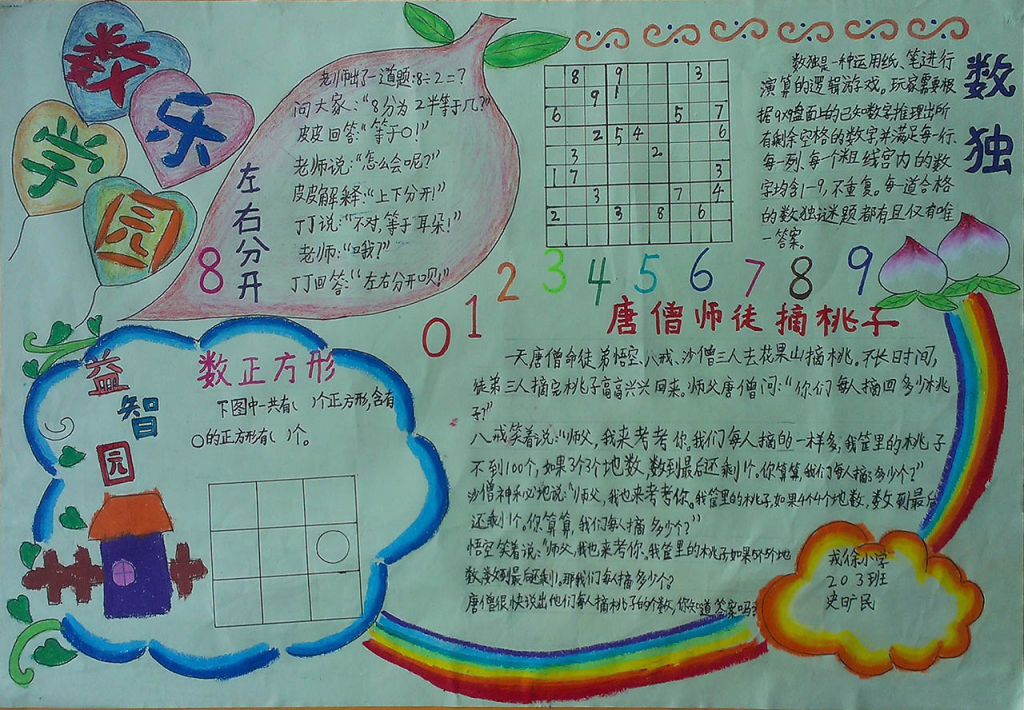 数学乐园
左右分开
8
老师出了一道题:8÷2=?
问大家:"8分为2半等于几?"
皮皮回答:"等于0!"
老师说:"怎么会呢?"
皮皮解释:"上下分开!"
丁丁说:"不对,等于耳朵!"
老师:"哦?"
丁丁回答:"左右分开呗!"
8 9 3
9 1
6 5 7
2 5 4
3 2
1 7 3
3 7 4
2 3 8 6
数独
数独是一种运用纸、笔进行
演算的逻辑游戏。玩家需要根
据9×9盘面上的已知数字推理出所
有剩余空格的数字,并满足每一行、
每一列、每个粗线宫内的数
字均含1-9,不重复。每一道合格
的数独谜题都有且仅有唯
一答案。
0 1 2 3 4 5 6 7 8 9
唐僧师徒摘桃子
一天唐僧命徒弟悟空、八戒、沙僧三人去花果山摘桃。不长日时间,
徒弟三人摘完桃子高高兴兴回来。师父唐僧问:"你们每人摘回多少桃
子?"
八戒笑着说:"师父,我来考考你。我们每人摘的一样多,我筐里的桃子
不到100个,如果3个3个地数,数到最后还剩1个。你算算,我们每人摘多少个?"
沙僧神秘地说:"师父,我也来考考你。我筐里的桃子,如果4个4个地数,数到最后
还剩1个。你算算,我们每人摘多少个?"
悟空笑着说:"师父,我也来考你,我筐里的桃子如果5个5个地
数,数到最后还剩1。那我们每人摘多少个?
唐僧很快说出他们每人摘桃子的个数,你知道答案吗?
益智园
数正方形
下图中一共有( )个正方形,含有
○的正方形有( )个。
戎徐小学
203班
史旷民